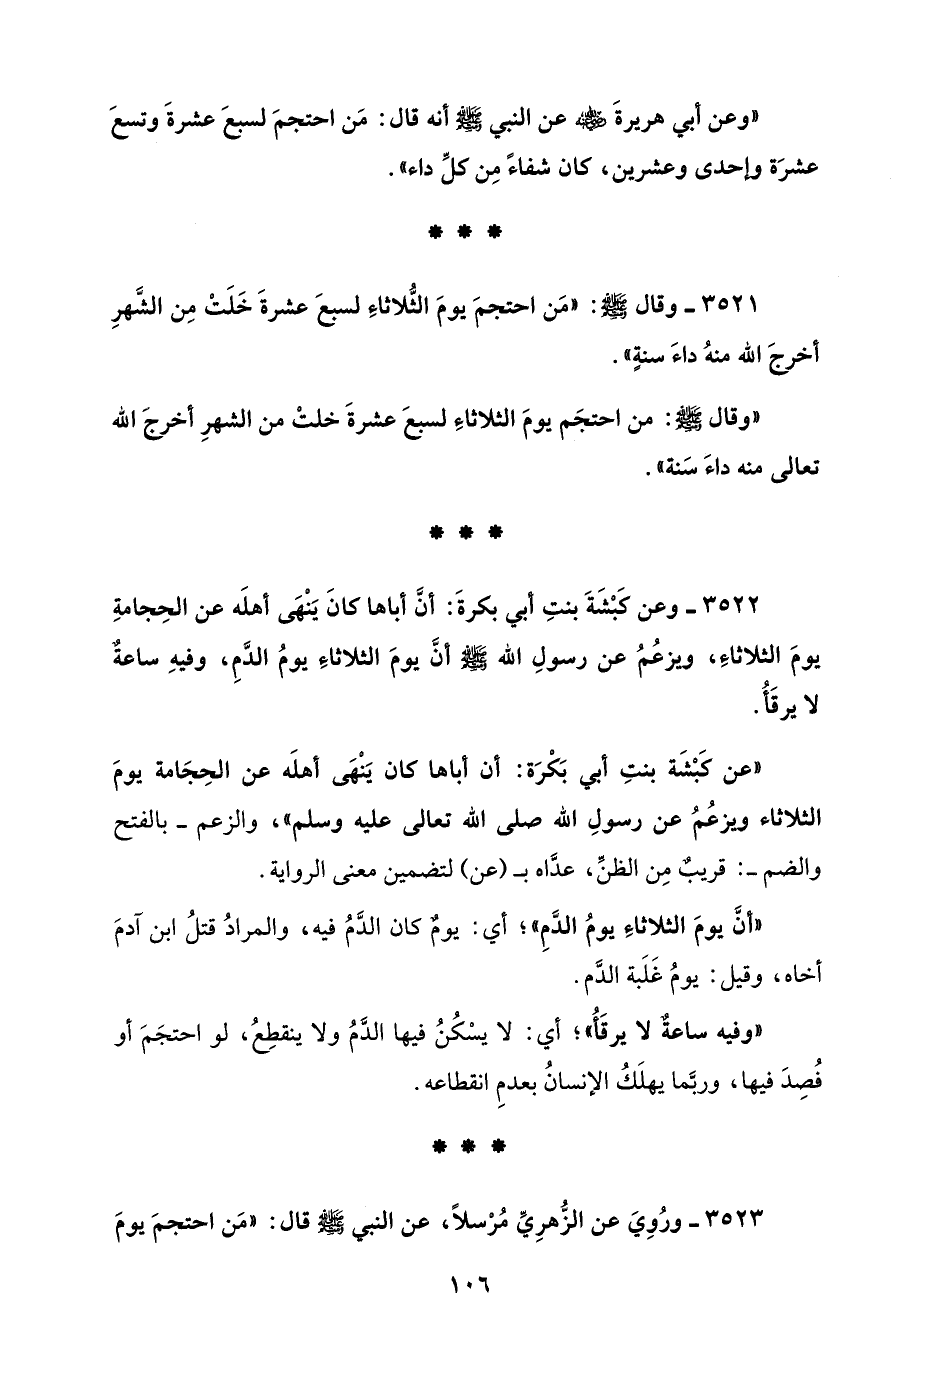 «وعن أبي هريرةَ ﵁ عن النبي ﷺ أنه قال: مَن احتجمَ لسبعَ عشرةَ وتسعَ
عشرَة وإحدى وعشرين، كان شفاءً مِن كلِّ داء».
* * *
٣٥٢١ ـ وقال ﷺ: «مَن احتجمَ يومَ الثُّلاثاءِ لسبعَ عشرةَ خَلَتْ مِن الشَّهرِ
أخرجَ الله منهُ داءَ سنةٍ».
«وقال ﷺ: من احتجَم يومَ الثلاثاءِ لسبعَ عشرةَ خلتْ من الشهرِ أخرجَ الله
تعالى منه داءَ سَنة».
* * *
٣٥٢٢ ـ وعن كَبْشَةَ بنتِ أبي بكرةَ: أنَّ أباها كانَ يَنْهَى أهلَه عن الحِجامةِ
يومَ الثلاثاءِ، ويزعُمُ عن رسولِ الله ﷺ أنَّ يومَ الثلاثاءِ يومُ الدَّمِ، وفيهِ ساعةٌ
لا يرقَأُ.
«عن كَبْشَة بنتِ أبي بَكْرَة: أن أباها كان يَنْهَى أهلَه عن الحِجَامة يومَ
الثلاثاء ويزعُمُ عن رسولِ الله صلى الله تعالى عليه وسلم»، والزعم ـ بالفتح
والضم ـ: قريبٌ مِن الظنِّ، عدَّاه بـ (عن) لتضمين معنى الرواية.
«أنَّ يومَ الثلاثاءِ يومُ الدَّمِ»؛ أي: يومٌ كان الدَّمُ فيه، والمرادُ قتلُ ابن آدمَ
أخاه، وقيل: يومُ غَلَبة الدَّم.
«وفيه ساعةٌ لا يرقَأُ»؛ أي: لا يسْكُنُ فيها الدَّمُ ولا ينقطِعُ، لو احتجَمَ أو
فُصِدَ فيها، وربَّما يهلَكُ الإنسانُ بعدمِ انقطاعه.
* * *
٣٥٢٣ ـ ورُوِيَ عن الزُّهرِيِّ مُرْسلاً، عن النبي ﷺ قال: «مَن احتجمَ يومَ
١٠٦